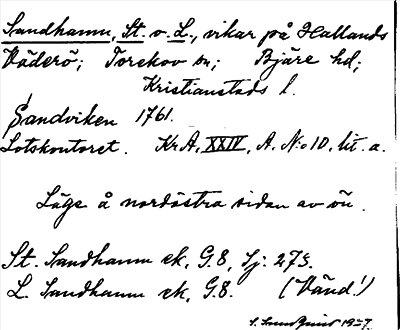 Sandhamn, St. o. L., vikar på Hallands
Väderö; Torekov sn; Bjäre hd;
Kristianstads l.
Sandviken 1761.
Lotskontoret. Kr A, XXIV, A. N:o 10, lit. a.
Läge å nordöstra sidan av ön.
St. Sandhamn ek, G.8, Sj: 273.
L. Sandhamn ek, G.8. (Vänd!)